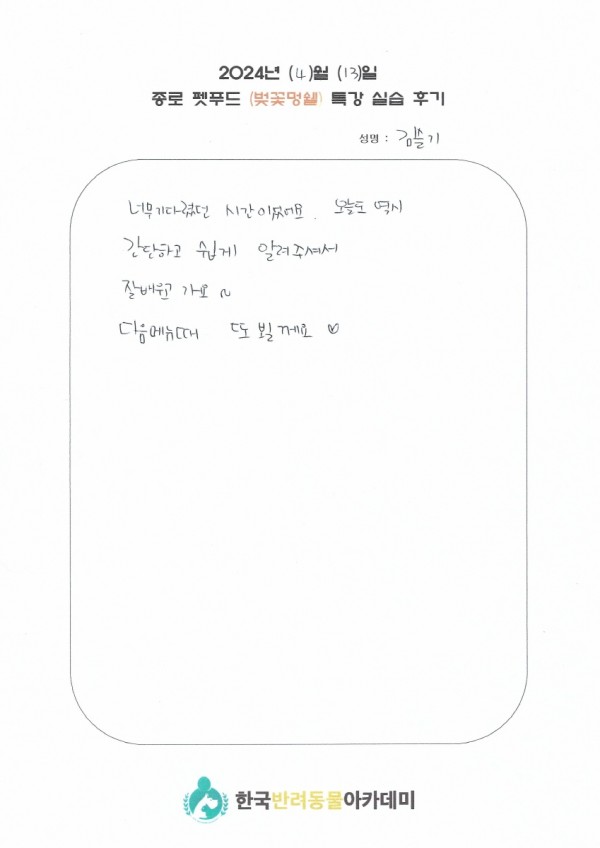 2024년 (4)월 (13)일
종로 펫푸드 (벚꽃멍쉘) 특강 실습 후기
성명 : 김쁠기
너무기다렸던 시간이었어요. 오늘도 역시
간단하고 쉽게 알려주셔서
잘배우고 가요~
다음메뉴때 또 뵐께요 ♡
한국반려동물아카데미